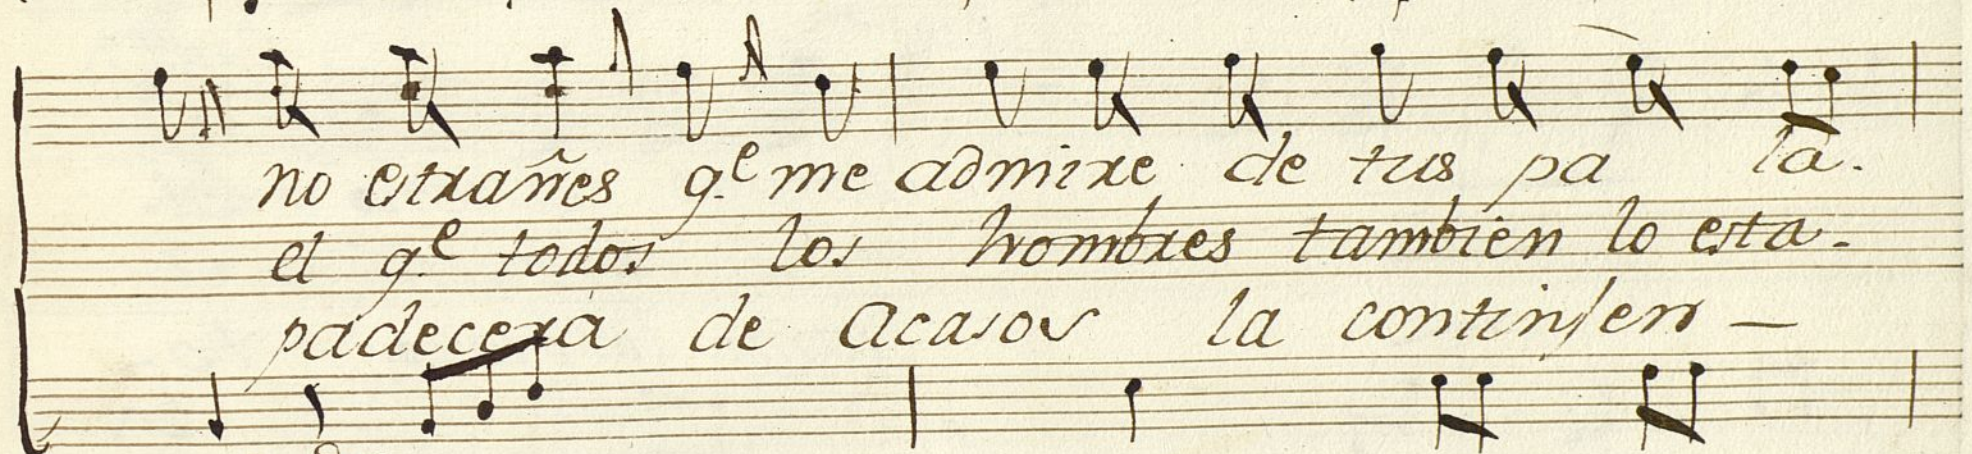 no estrañes q.e me admire de tus pa la.
el q.e todos los hombres tambien lo esta-
padecerá de Acasos la contingen —